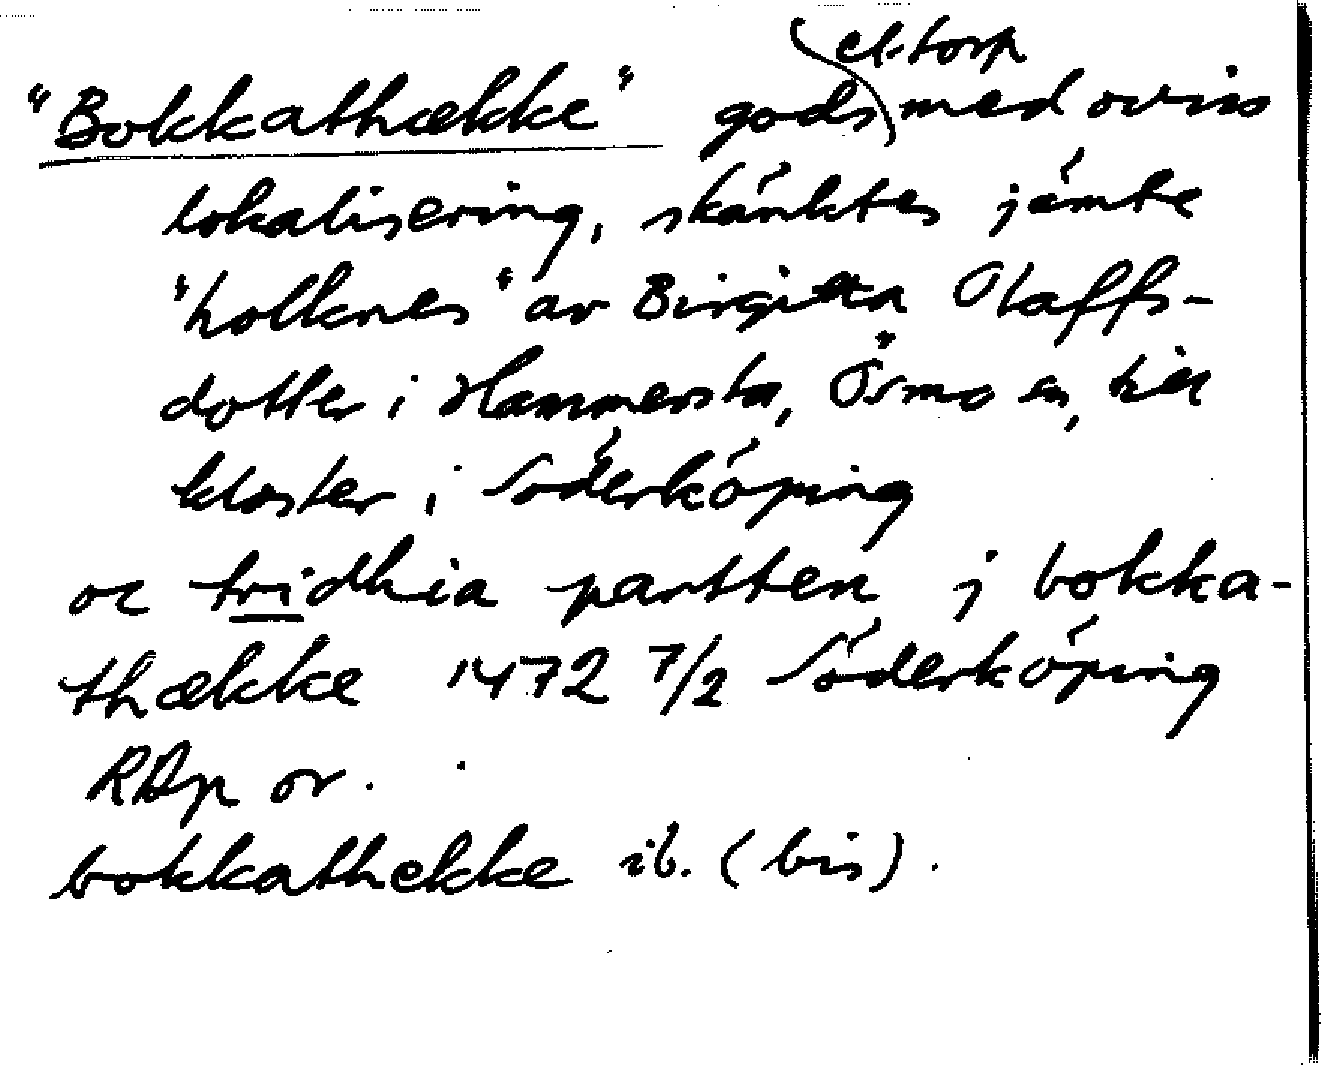 "Bokkathække" gods el. torp med oviss
lokalisering, skänktes jämte
"holknes" av Birgitta Olaffs-
dotter i Hammersta, Ösmo sn, till
kloster i Söderköping
oc tridhia partten j bokka-
thække 1472 7/2 Söderköping
RAp or.
bokkathekke ib. (bis).